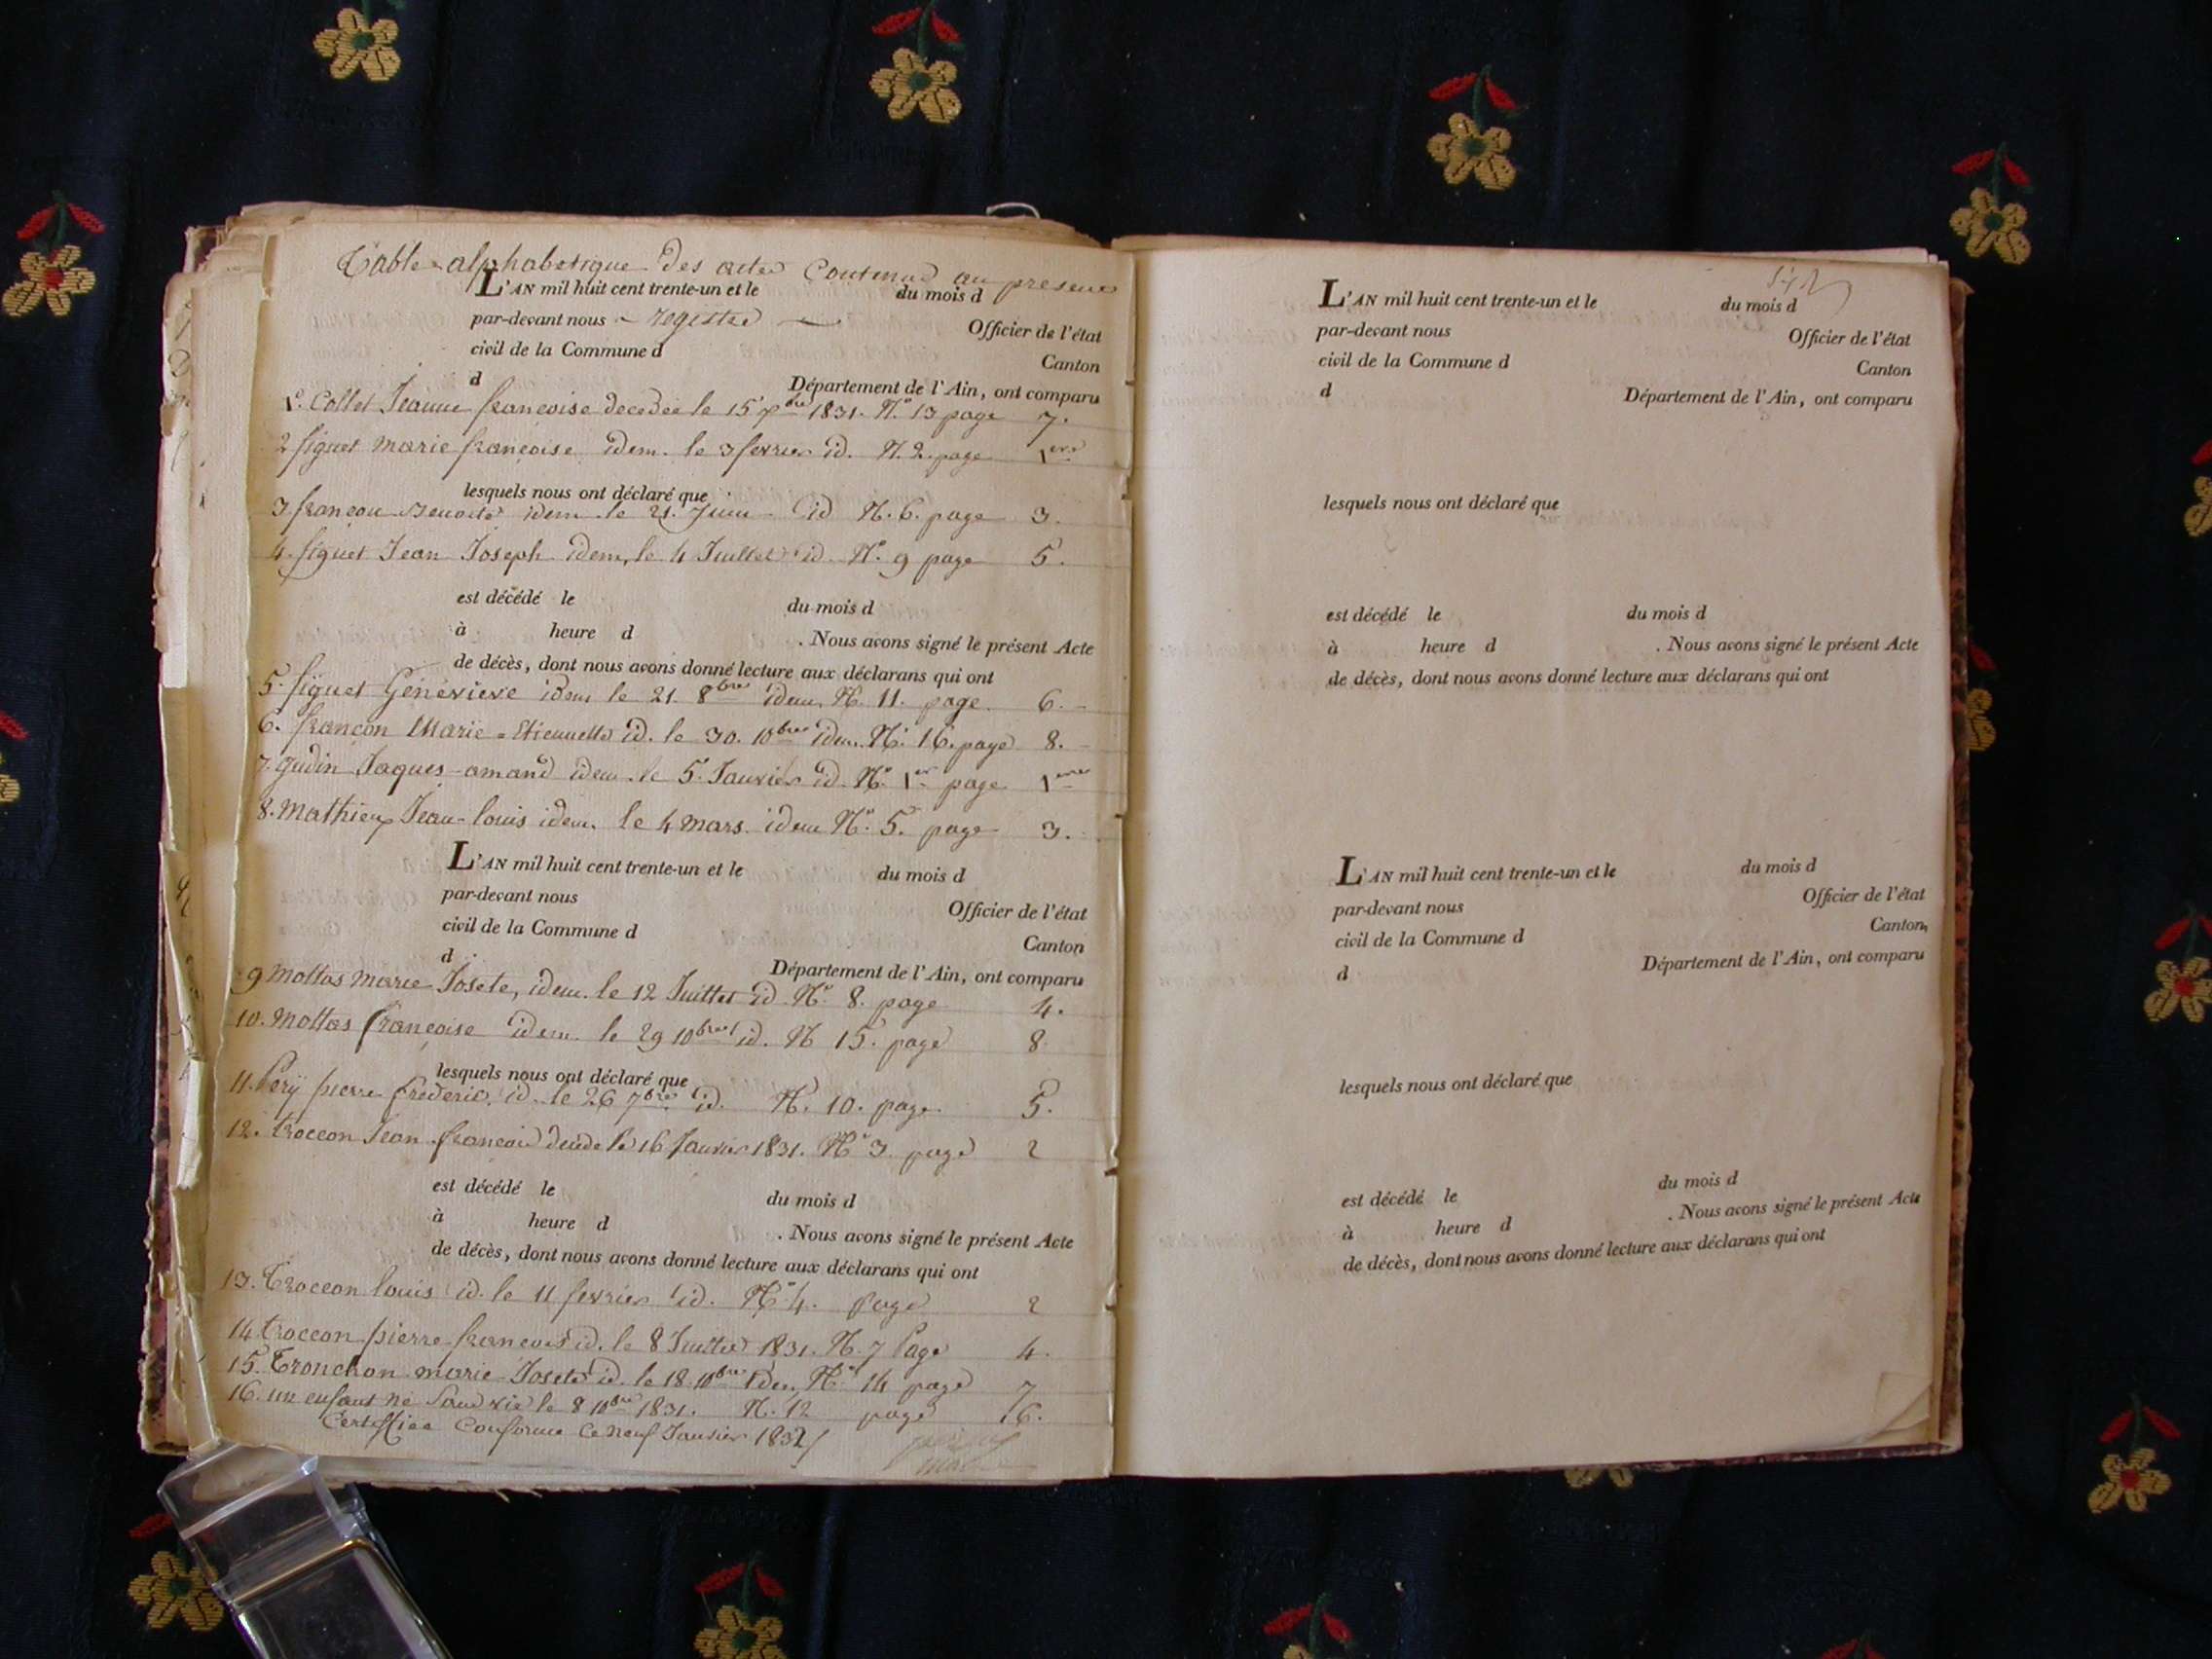 Table alphabetique des actes contenus au present
L'AN mil huit cent trente-un et le du mois d
par-devant nous registre Officier de l'état
civil de la Commune d Canton
d Département de l'Ain, ont comparu
1°. Collet Jeanne francoise decedée le 15 7bre 1831. N.° 13 page 7.
2 figuet marie francoise idem. le 3 fevrier id. N. 2. page 1ere
lesquels nous ont déclaré que
3 francon idem le 21. Juin id N. 6. page 3.
4. figuet Jean Joseph idem, le 4 Juillet id. N.° 9 page 5.
est décédé le du mois d
à heure d . Nous avons signé le présent Acte
de décès, dont nous avons donné lecture aux déclarans qui ont
5. figuet Génévieve idem le 21. 8bre idem N. 11. page. 6.
6. francon Marie-Etiennette id. le 30. 10bre idem. N.° 16. page 8.
7. gudin Jaques-amand idem. le 5. Janvier id. N.° 1er page 1ere
8. Mathieu Jean-louis idem. le 4 mars. idem N.° 5. page 3.
L'AN mil huit cent trente-un et le du mois d
par-devant nous Officier de l'état
civil de la Commune d Canton
d Département de l'Ain, ont comparu
9 mottas marie Josete, idem. le 12 Juillet id N.° 8. page 4.
10. mottas francoise idem. le 29 10bre id. N 15. page 8
lesquels nous ont déclaré que
11. Pery pierre frederic. id. le 26 7bre id. N. 10. page 5.
12. troccon Jean francois decede le 16 Janvier 1831. N° 3 page 2
est décédé le du mois d
à heure d . Nous avons signé le présent Acte
de décès, dont nous avons donné lecture aux déclarans qui ont
13. Troccon louis id. le 11 fevrier id. N.° 4. page 2
14 troccon pierre francois id. le 8 Juillet 1831. N. 7 Page 4.
15. Tronchon marie Josete id. le 18. 10bre idem N.° 14 page 7
16. un enfant né sans vie le 8 10bre 1831. N. 12 page 6.
Certifiée Conforme ce neuf Janvier 1832
L'AN mil huit cent trente-un et le du mois d
par-devant nous Officier de l'état
civil de la Commune d Canton
d Département de l'Ain, ont comparu
lesquels nous ont déclaré que
est décédé le du mois d
à heure d . Nous avons signé le présent Acte
de décès, dont nous avons donné lecture aux déclarans qui ont
L'AN mil huit cent trente-un et le du mois d
par-devant nous Officier de l'état
civil de la Commune d Canton
d Département de l'Ain, ont comparu
lesquels nous ont déclaré que
est décédé le du mois d
à heure d . Nous avons signé le présent Acte
de décès, dont nous avons donné lecture aux déclarans qui ont